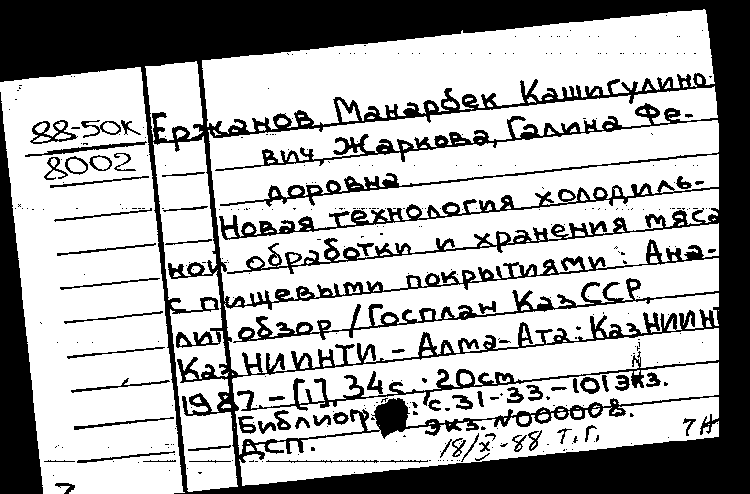 88-50к
8002
Ержанов, Манарбек Кашигулино-
вич, Жаркова, Галина Фе-
доровна.
Новая технология холодиль-
ной обработки и хранения мяса
с пищевыми покрытиями: Ана-
лит. обзор / Госплан КазССР,
КазНИИНТИ. - Алма-Ата: КазНИИНТ
1987. - [1], 34 с.; 20 см.
Библиогр.: с. 31-33. - 101 экз.
Экз. №000008.
ДСП.
18/X-88. Т.Г.
7А